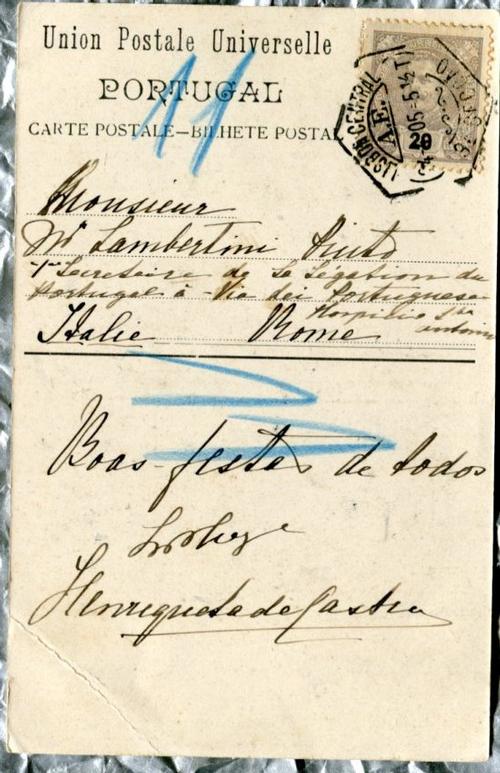 Union Postale Universelle
PORTUGAL
CARTE POSTALE—BILHETE POSTAL
LISBOA CENTRAL
A.E.
05-5½T
20
11
Monsieur
Mr Lambertini Pinto
1er Secretaire de la Légation du
Portugal à Via dei Portuguese
Hospilio Sto
Antonio
Italie Rome
Boas festas de todos
Henriqueta de Castro